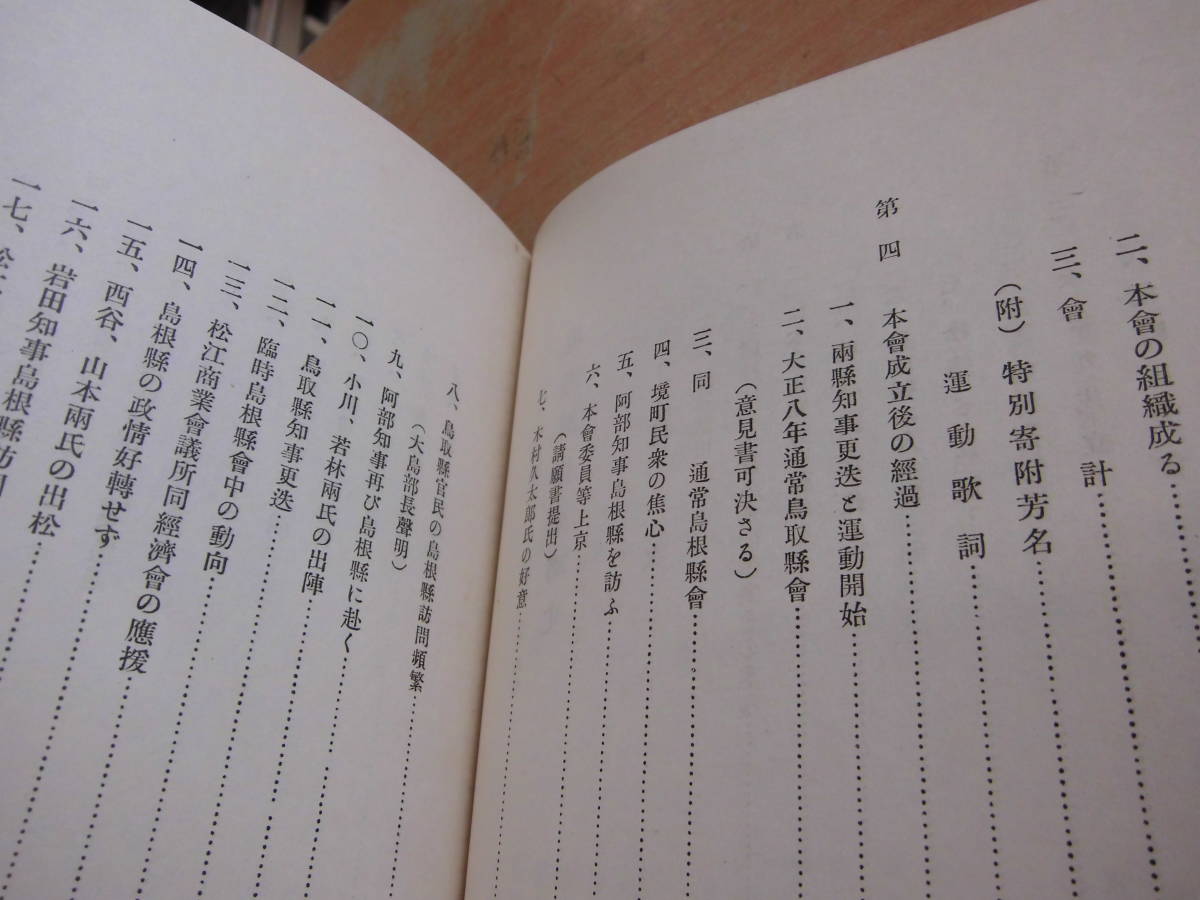 二、本會の組織成る
三、會計
(附)特別寄附芳名
運動歌詞
第四 本會成立後の經過
一、兩縣知事更迭と運動開始
二、大正八年通常鳥取縣會
(意見書可決さる)
三、同 通常島根縣會
四、境町民衆の焦心
五、阿部知事島根縣を訪ふ
六、本會委員等上京
(請願書提出)
七、木村久太郎氏の好意
八、鳥取縣官民の島根縣訪問頻繁
(大島部長聲明)
九、阿部知事再び島根縣に赴く
一〇、小川、若林兩氏の出陣
一一、鳥取縣知事更迭
一二、臨時島根縣會中の動向
一三、松江商業會議所同經濟會の應援
一四、島根縣の政情好轉せず
一五、西谷、山本兩氏の出松
一六、岩田知事島根縣訪問
一七、松江